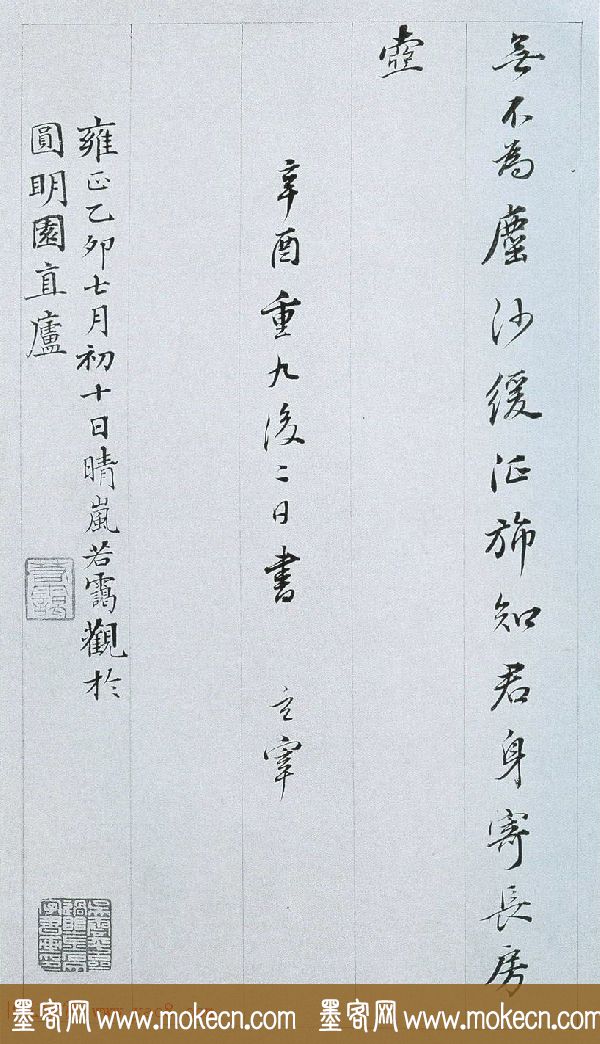 無不為塵沙緩征旆知君身寄長房
壺
辛酉重九後二日書 立宰
雍正乙卯七月初十日晴嵐若靄觀於
圓明園直廬
若靄
墨客网 www.mokecn.com 墨客网 www.mokecn.com